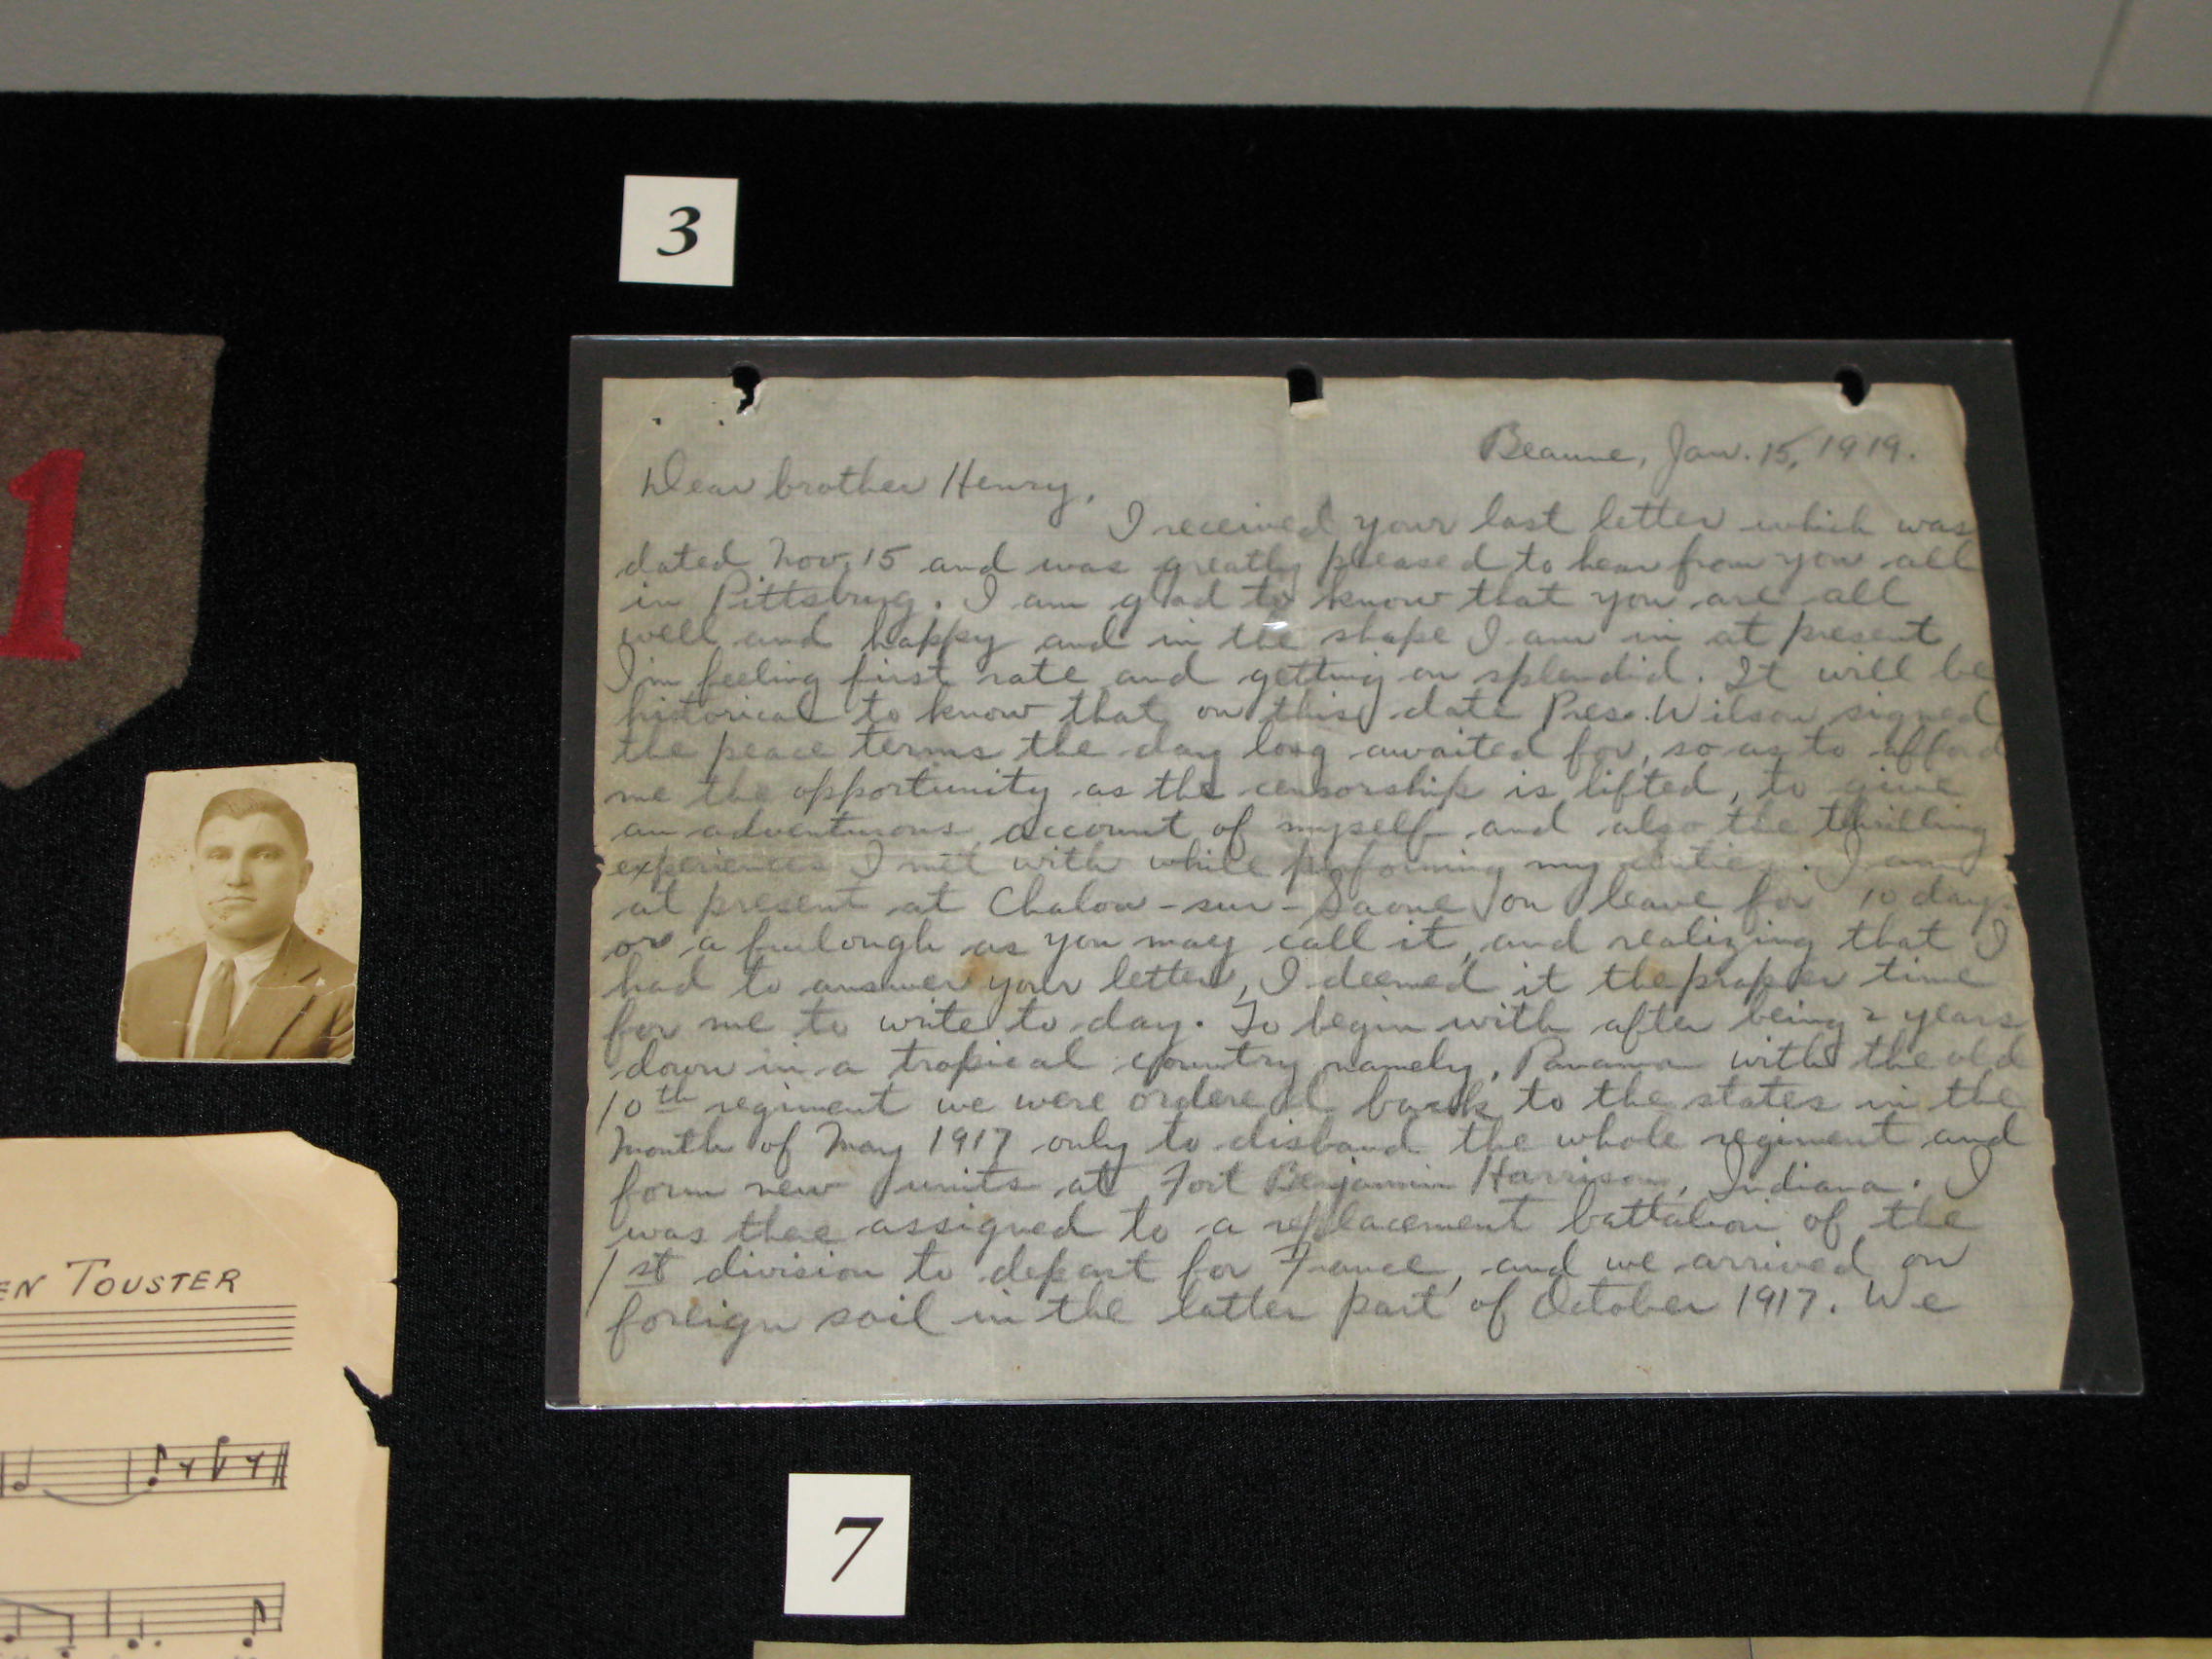 3
1
Beaune, Jan. 15, 1919.
Dear brother Henry,
I received your last letter which was
dated Nov. 15 and was greatly pleased to hear from you all
in Pittsbrug. I am glad to know that you are all
well and happy and in the shape I am in at present
I'm feeling first rate and getting on splendid. It will be
historical to know that on this date Pres. Wilson signed
the peace terms the day long awaited for, so as to afford
me the opportunity as the censorship is lifted, to give
an adventurous account of myself and also the thrilling
experiences I met with while performing my duties. I am
at present at Chalon-sur-Saone on leave for 10 days
or a furlough as you may call it, and realizing that I
had to answer your letter, I deemed it the proper time
for me to write to day. To begin with after being 2 years
down in a tropical country namely, Panama with the old
10th regiment we were ordered back to the states in the
month of May 1917 only to disband the whole regiment and
form new units at Fort Benjamin Harrison, Indiana. I
was thee assigned to a replacement battalion of the
1st division to depart for France, and we arrived on
foreign soil in the latter part of October 1917. We
EN TOUSTER
7